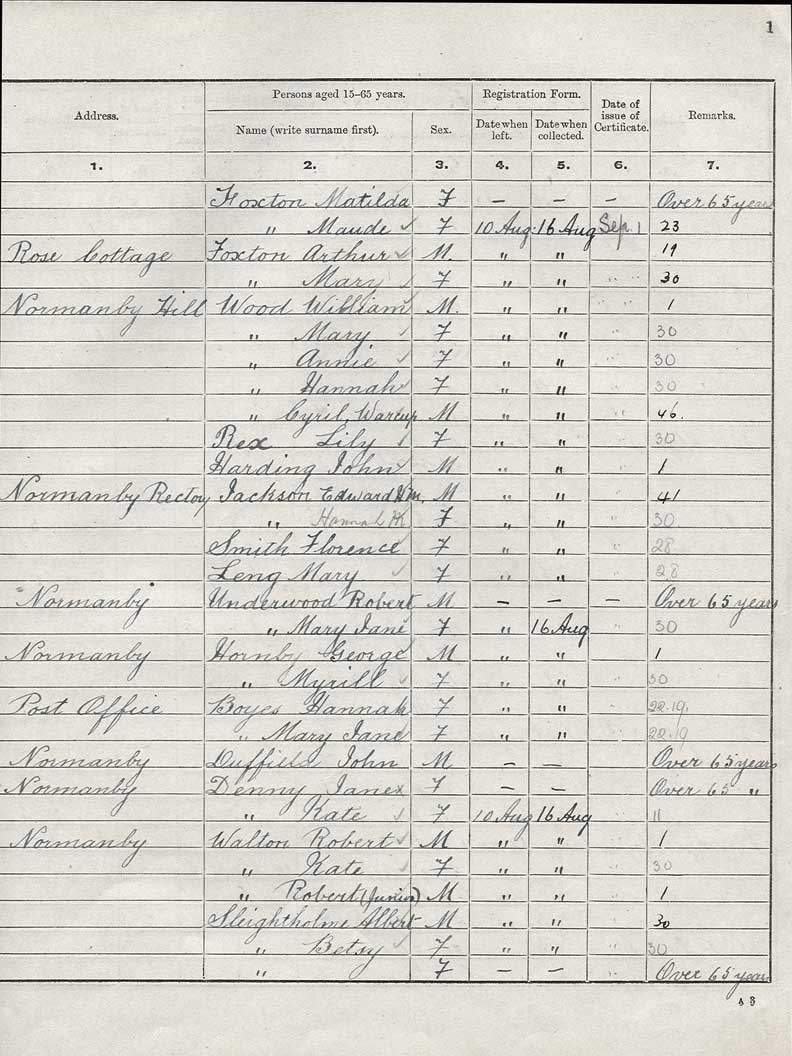 1
Address. Persons aged 15–65 years. Registration Form. Date of issue of Certificate. Remarks.
Name (write surname first). Sex. Date when left. Date when collected.
1. 2. 3. 4. 5. 6. 7.
Foxton Matilda F — — — Over 65 years
" Maude F 10 Aug. 16 Aug Sep. 1 23
Rose Cottage Foxton Arthur M. " " " " 19
" Mary F " " " " 30
Normanby Hill Wood William M. " " " " 1
" Mary F " " " 30
" Annie F " " " 30
" Hannah F " " " 30
" Cyril Warcup M " " " 46.
Rex Lily F " " " 30
Harding John M " " " 1
Normanby Rectory Jackson Edward Wm. M " " " 41
" Hannah M F " " " 30
Smith Florence F " " " 28
Leng Mary F " " " 28
"Normanby" Underwood Robert M — — — Over 65 years
" Mary Jane F " 16 Aug " 30
Normanby Hornby George M " " " 1
" Myrill F " " " 30
Post Office Boyes Hannah F " " " 22.19.
" Mary Jane F " " " 22.19
Normanby Duffill John M — — Over 65 years
Normanby Denny Jane x F — — Over 65 "
" Kate F 10 Aug 16 Aug " 11
Normanby Walton Robert M " " " 1
" Kate F " " " 30
" Robert (Junior) M " " " 1
Sleightholme Albert M " " " 30
" Betsy F " " " 30
" F — — " Over 65 years
A 3